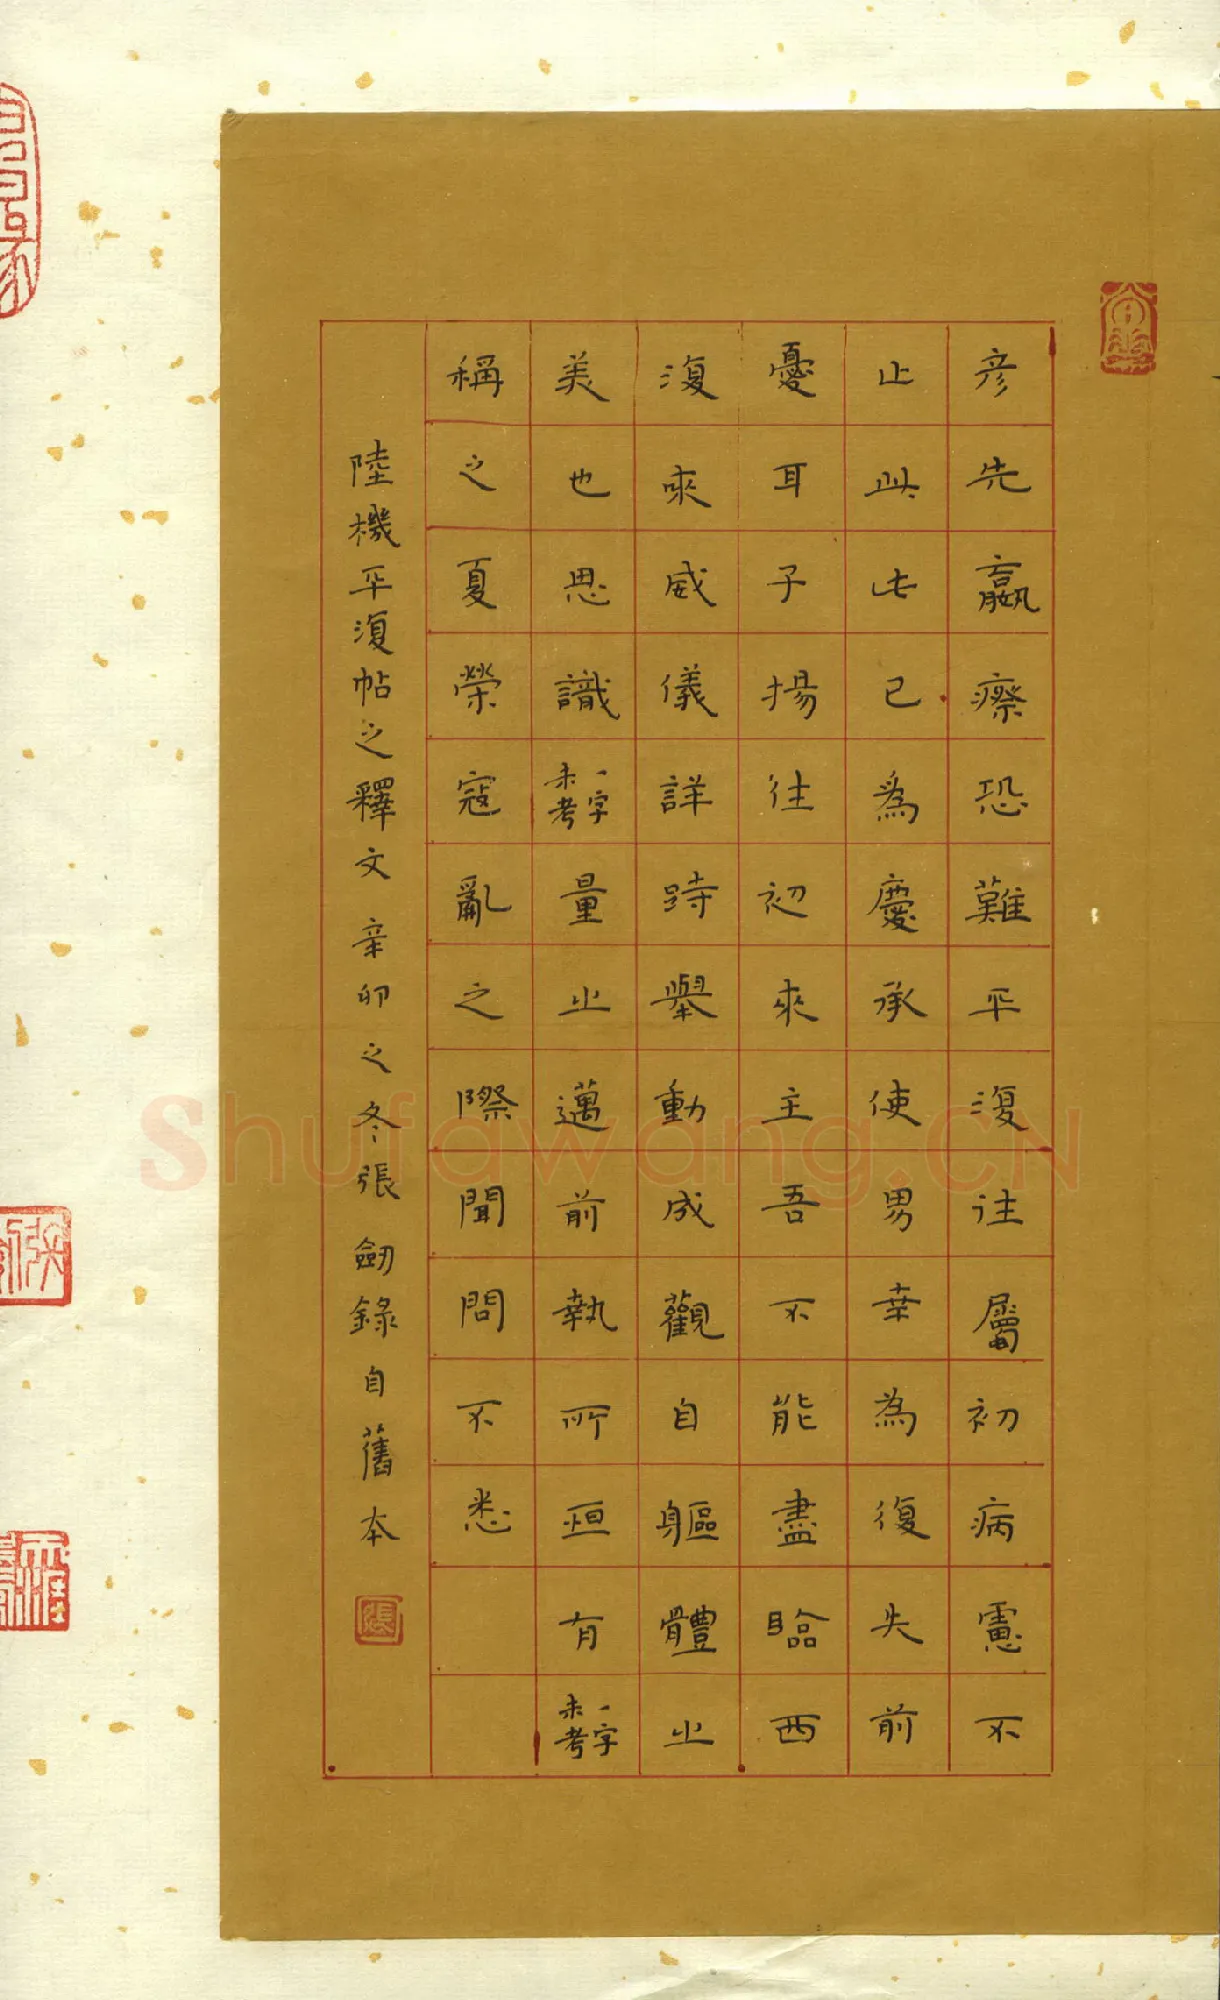 彦先羸瘵恐難平復往屬初病慮不
止此此已為慶承使男幸為復失前
憂耳子揚往初來主吾不能盡臨西
復來威儀詳跱舉動成觀自軀體之
美也思識一字未考量之邁前執所恒有一字未考
稱之夏榮寇亂之際聞問不悉
陸機平復帖之釋文 辛卯之冬張劍錄自舊本
Shufawang.CN